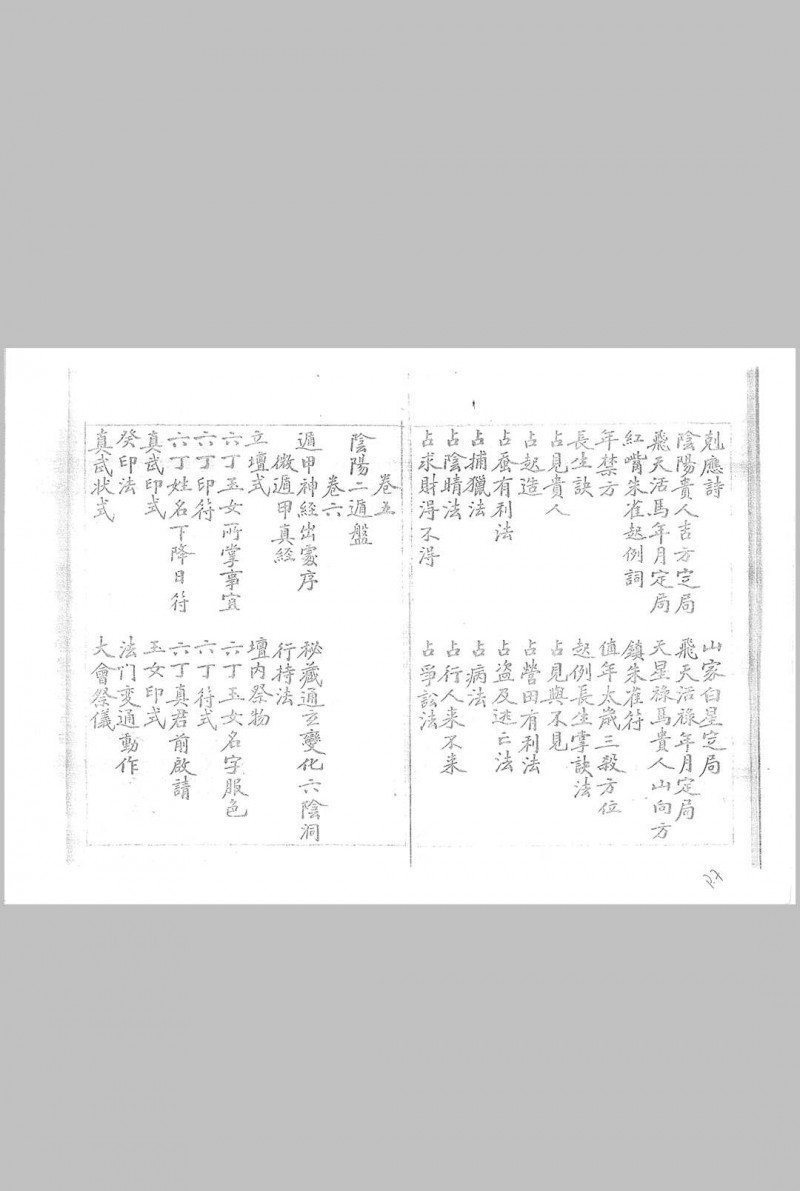 剋應詩　山家白星定局
陰陽貴人吉方定局　飛天活祿年月定局
飛天活馬年月定局　天星祿馬貴人山向方
紅嘴朱雀起例詞　鎮朱雀符
年禁方　值年太歲三殺方位
長生訣　起例長生掌訣法
占見貴人　占見與不見
占起造　占營田有利法
占蚕有利法　占盜及逃亡法
占捕獵法　占病法
占陰晴法　占行人来不来
占求財得不得　占爭訟法
卷五
陰陽二遁盤
卷六
遁甲神經出處序　秘藏通玄變化六陰洞
微遁甲真經　行持法
立壇式　壇內祭物
六丁玉女所掌事宜　六丁玉女名字服色
六丁印符　六丁符式
六丁姓名下降日符　六丁真君前啟請
真武印式　玉女印式
癸印法　法门变通動作
真武状式　大會祭儀